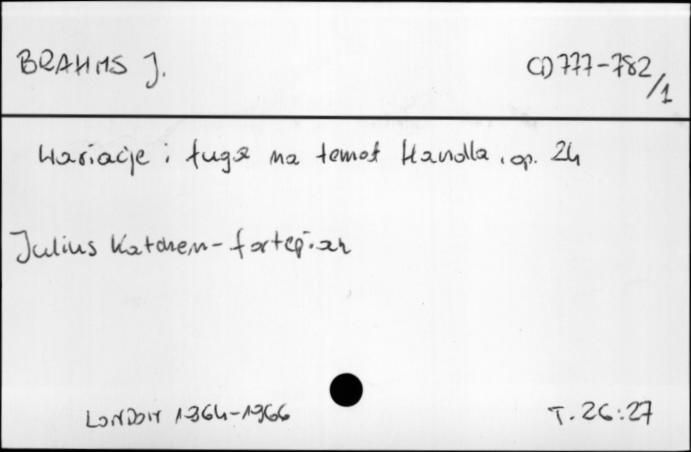 BRAHMS J. CD 777-782/1
Wariacje i fuga na temat Handla, op. 24
Julius Katchen - fortepian
LONDON 1964-1966 T. 26:27